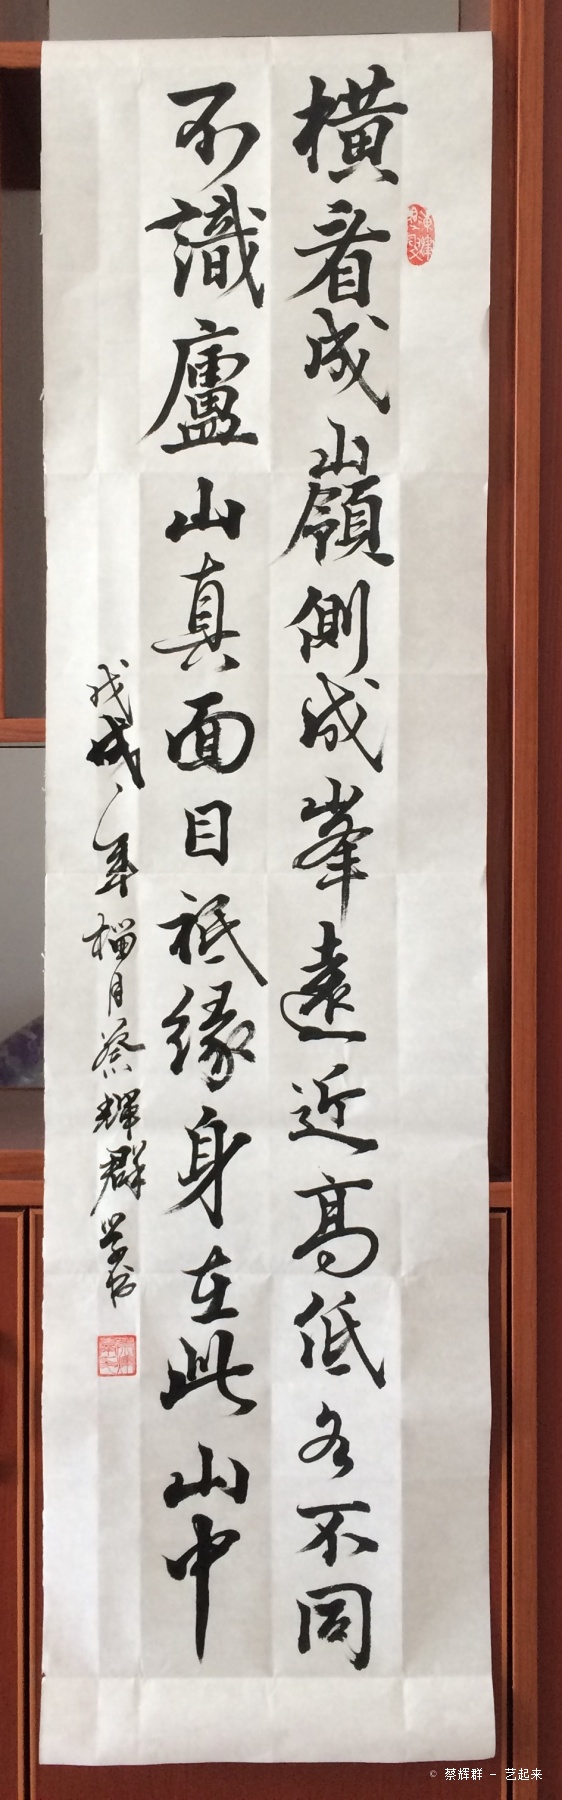 橫看成嶺側成峯遠近高低各不同
不識廬山真面目祗緣身在此山中
戊戌年榴月蔡輝群学书
© 蔡辉群 - 艺起来